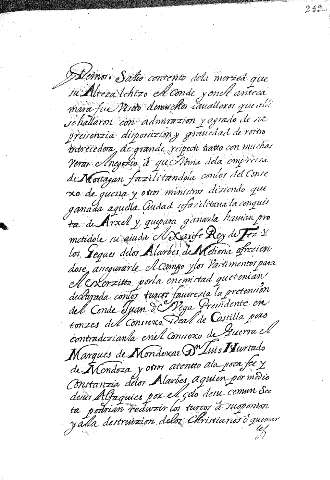 212
Salio contento dela merced que
su Alteza le hizo el Conde y en el anteca
mara fue visto de muchos cavalleros que alli
se hallaron con admiracion y agrado de su
presencia disposicion y gravedad de rostro
de grande respecto trato con muchas
veras el negocio de la empressa
de Mostagan facilitandola con los del Conse
xo de guerra y otros ministros diziendo que
ganada aquella Ciudad se facilitava la conquis
ta de Arxel y que para ganarla havian pro
metidole su ajuda el Xarife Rey de Fez y
los Xeques delos Alarbes de Meliona ofrecien
dose asegurarle el Campo y los bastimentos para
el exercito por la enemistad que tenian
con los turcos favorescia la pretension
del Conde Juan de Vega Presidente en
tonzes del Consexo Real de Castilla pero
contradezianla en el Consexo de Guerra el
Marques de Mondexar Dn Luis Hurtado
de Mendoza y otros atento ala poca fee y
Constanzia delos Alarbes a quien por medio
de sus Alfaquies por el zelo de su comun Sec
ta podrian reduzir los turcos a su opinion
y a la destruizion delos Christianos